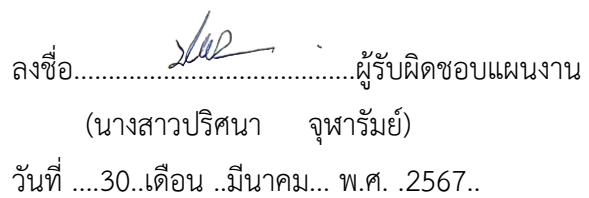 ลงชื่อ..........................................ผู้รับผิดชอบแผนงาน
(นางสาวปริศนา จุฬารัมย์)
วันที่ ....30..เดือน ..มีนาคม... พ.ศ. .2567..